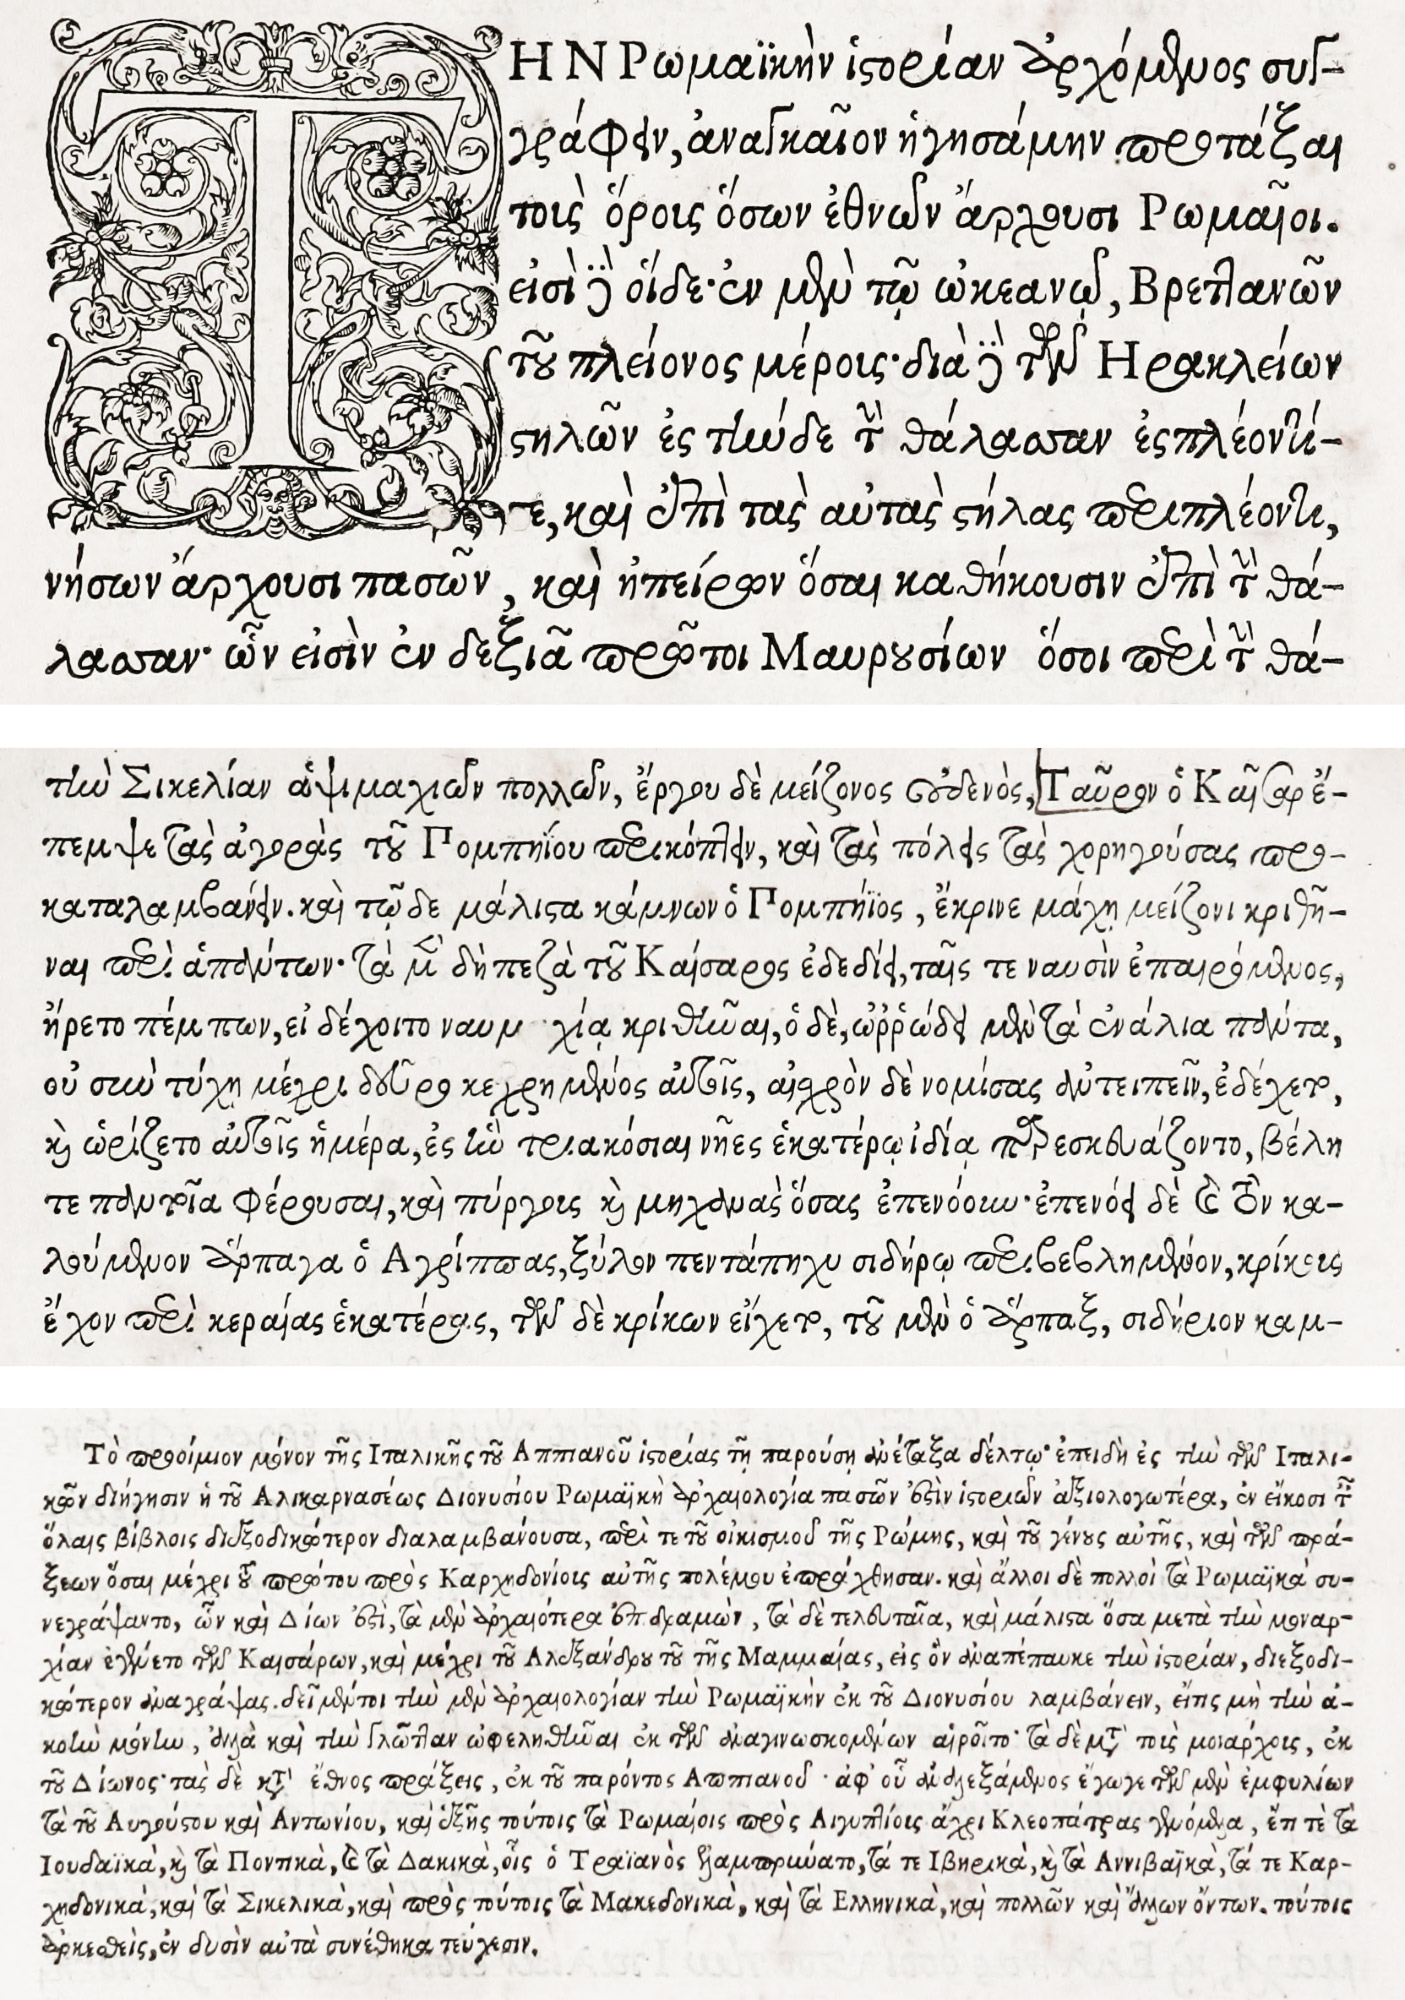 ΤΗΝ Ρωμαϊκὴν ἱστορίαν ἀρχόμενος συγ-
γράφειν, ἀναγκαῖον ἡγησάμην προτάξαι
τοὺς ὅρους ὅσων ἐθνῶν ἄρχουσι Ρωμαῖοι.
εἰσὶ δὲ οἵδε· ἐν μὲν τῷ ὠκεανῷ, Βρεττανῶν
τοῦ πλείονος μέρους· διὰ δὲ τῶν Ηρακλείων
στηλῶν ἐς τήνδε τὴν θάλασσαν ἐσπλέοντί-
τε, καὶ ἐπὶ τὰς αὐτὰς στήλας περιπλέοντι,
νήσων ἄρχουσι πασῶν, καὶ ἠπείρων ὅσαι καθήκουσιν ἐπὶ τὴν θά-
λασσαν· ὧν εἰσὶν ἐν δεξιᾷ πρῶτοι Μαυρουσίων ὅσοι περὶ τὴν θά-
τὴν Σικελίαν ἁψιμαχιῶν πολλῶν, ἔργου δὲ μείζονος οὐδενὸς, Ταῦρον ὁ Καῖσαρ ἔ-
πεμψε τὰς ἀγορὰς τοῦ Πομπηΐου περικόπτειν, καὶ τὰς πόλεις τὰς χορηγούσας προ-
καταλαμβάνειν. καὶ τῷδε μάλιστα κάμνων ὁ Πομπήϊος, ἔκρινε μάχῃ μείζονι κριθῆ-
ναι περὶ ἁπάντων· τὰ μὲν δὴ πεζὰ τοῦ Καίσαρος ἐδεδίει, ταῖς τε ναυσὶν ἐπαιρόμενος,
ἤρετο πέμπων, εἰ δέχοιτο ναυμ χίᾳ κριθῆναι, ὁ δὲ, ὠῤῥώδει μὲν τὰ ἐνάλια πάντα,
οὐ σὺν τύχῃ μέχρι δεῦρο κεχρημένος αὐτοῖς, αἰσχρὸν δὲ νομίσας ἀντειπεῖν, ἐδέχετο,
καὶ ὡρίζετο αὐτοῖς ἡμέρα, ἐς ἣν τριακόσιαι νῆες ἑκατέρῳ ἰδίᾳ παρεσκευάζοντο, βέλη
τε παντοῖα φέρουσαι, καὶ πύργους καὶ μηχανὰς ὅσας ἐπενόουν· ἐπενόει δὲ καὶ τὸν κα-
λούμενον ἅρπαγα ὁ Αγρίππας, ξύλον πεντάπηχυ σιδήρῳ περιβεβλημένον, κρίκους
ἔχον περὶ κεραίας ἑκατέρας, τῶν δὲ κρίκων εἴχετο, τοῦ μὲν ὁ ἅρπαξ, σιδήριον καμ-
Τὸ προοίμιον μόνον τῆς Ιταλικῆς τοῦ Αππιανοῦ ἱστορίας τῇ παρούσῃ ἀνέταξα δέλτῳ· ἐπειδὴ ἐς τὴν τῶν Ιταλι-
κῶν διήγησιν ἡ τοῦ Αλικαρνασέως Διονυσίου Ρωμαϊκὴ ἀρχαιολογία πασῶν ἐστὶν ἱστοριῶν ἀξιολογωτέρα, ἐν εἴκοσι ταῖς
ὅλαις βίβλοις διεξοδικώτερον διαλαμβάνουσα, περὶ τε τοῦ οἰκισμοῦ τῆς Ρώμης, καὶ τοῦ γένους αὐτῆς, καὶ τῶν πρά-
ξεων ὅσαι μέχρι τοῦ πρώτου πρὸς Καρχηδονίους αὐτῆς πολέμου ἐπράχθησαν. καὶ ἄλλοι δὲ πολλοὶ τὰ Ρωμαϊκὰ συ-
νεγράψαντο, ὧν καὶ Δίων ἐστὶ, τὰ μὲν ἀρχαιότερα ἐπιδραμὼν, τὰ δὲ τελευταῖα, καὶ μάλιστα ὅσα μετὰ τὴν μοναρ-
χίαν ἐγένετο τῶν Καισάρων, καὶ μέχρι τοῦ Αλεξάνδρου τοῦ τῆς Μαμμαίας, εἰς ὃν ἀναπέπαυκε τὴν ἱστορίαν, διεξοδι-
κώτερον ἀναγράψας. δεῖ μέντοι τὴν μὲν ἀρχαιολογίαν τὴν Ρωμαϊκὴν ἐκ τοῦ Διονυσίου λαμβάνειν, εἴπις μὴ τὴν ἀ-
κοὴν μόνην, ἀλλὰ καὶ τὴν γλῶτταν ὠφεληθῆναι ἐκ τῶν ἀναγινωσκομένων αἱροῖτο· τὰ δὲ μετὰ τοὺς μονάρχους, ἐκ
τοῦ Δίωνος· τὰς δὲ κατὰ ἔθνος πράξεις, ἐκ τοῦ παρόντος Αππιανοῦ· ἀφ' οὗ ἀναλεξάμενος ἔγωγε τῶν μὲν ἐμφυλίων
τὰ τοῦ Αυγούστου καὶ Αντωνίου, καὶ ἑξῆς τούτοις τὰ Ρωμαίοις πρὸς Αιγυπτίοις ἄχρι Κλεοπάτρας γενόμενα, ἔπι τὲ τὰ
Ιουδαϊκὰ, καὶ τὰ Ποντικὰ, καὶ τὰ Δακικὰ, οἷς ὁ Τραϊανὸς ἐλαμπρύνατο, τά τε Ιβηρικὰ, καὶ τὰ Αννιβαϊκὰ, τά τε Καρ-
χηδονικὰ, καὶ τὰ Σικελικὰ, καὶ πρὸς τούτοις τὰ Μακεδονικὰ, καὶ τὰ Ελληνικὰ, καὶ πολλῶν καὶ ἄλλων ὄντων. τούτοις
ἀρκεσθεὶς, ἐν δυσὶν αὐτὰ συνέθηκα τεύχεσιν.